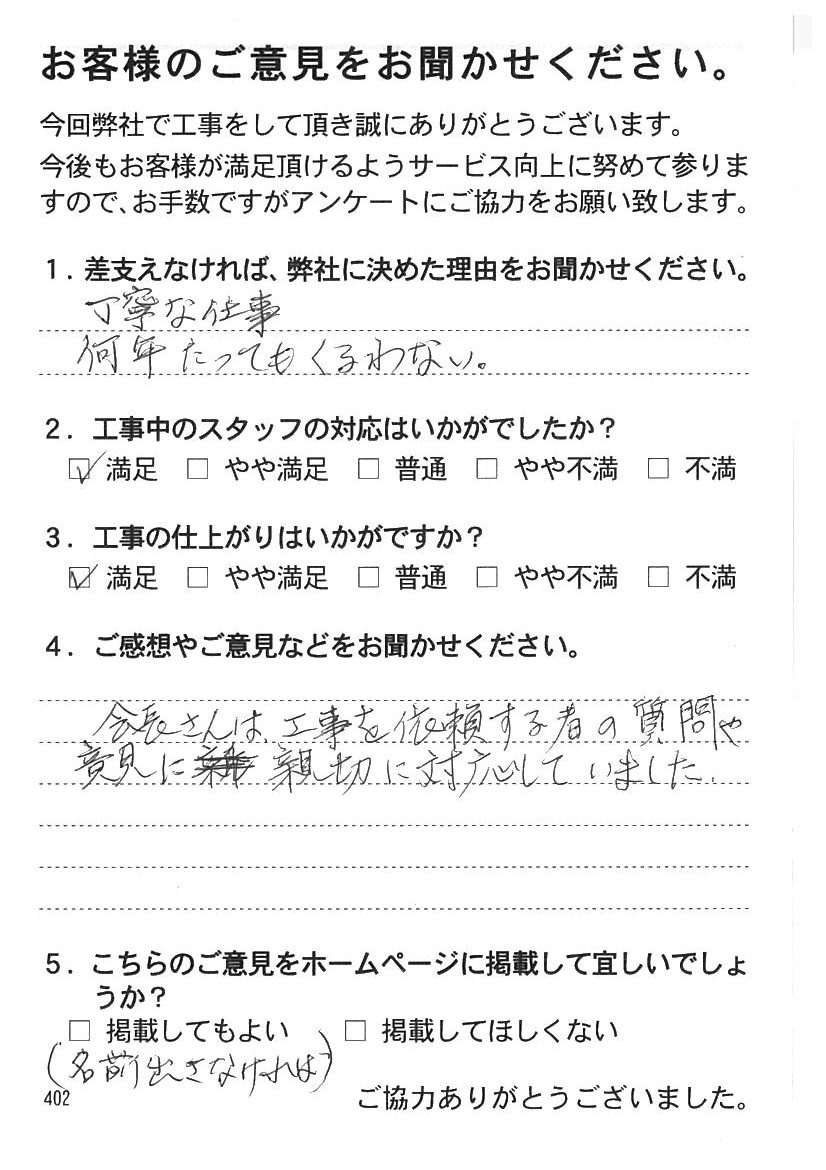 お客様のご意見をお聞かせください。
今回弊社で工事をして頂き誠にありがとうございます。
今後もお客様が満足頂けるようサービス向上に努めて参りま
すので、お手数ですがアンケートにご協力をお願い致します。
1．差支えなければ、弊社に決めた理由をお聞かせください。
丁寧な仕事
何年たってもくるわない。
2．工事中のスタッフの対応はいかがでしたか？
☑ 満足 □ やや満足 □ 普通 □ やや不満 □ 不満
3．工事の仕上がりはいかがですか？
☑ 満足 □ やや満足 □ 普通 □ やや不満 □ 不満
4．ご感想やご意見などをお聞かせください。
会長さんは、工事を依頼する者の質問や
意見に親切に対応していました。
5．こちらのご意見をホームページに掲載して宜しいでしょ
うか？
□ 掲載してもよい □ 掲載してほしくない
(名前出さなければ)
402 ご協力ありがとうございました。